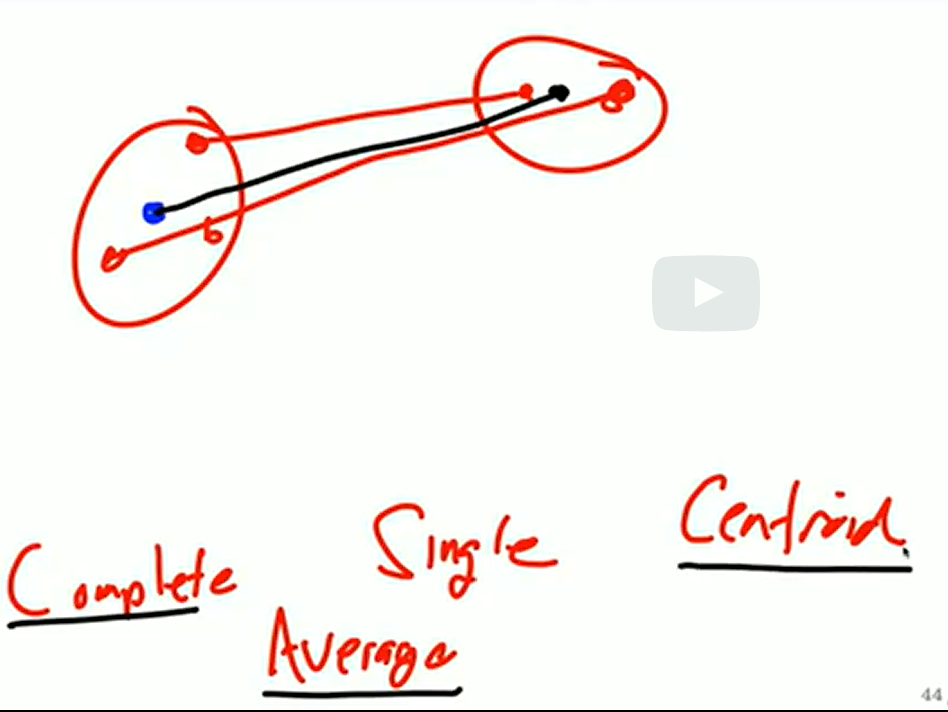 Complete Single Centroid
Average
44